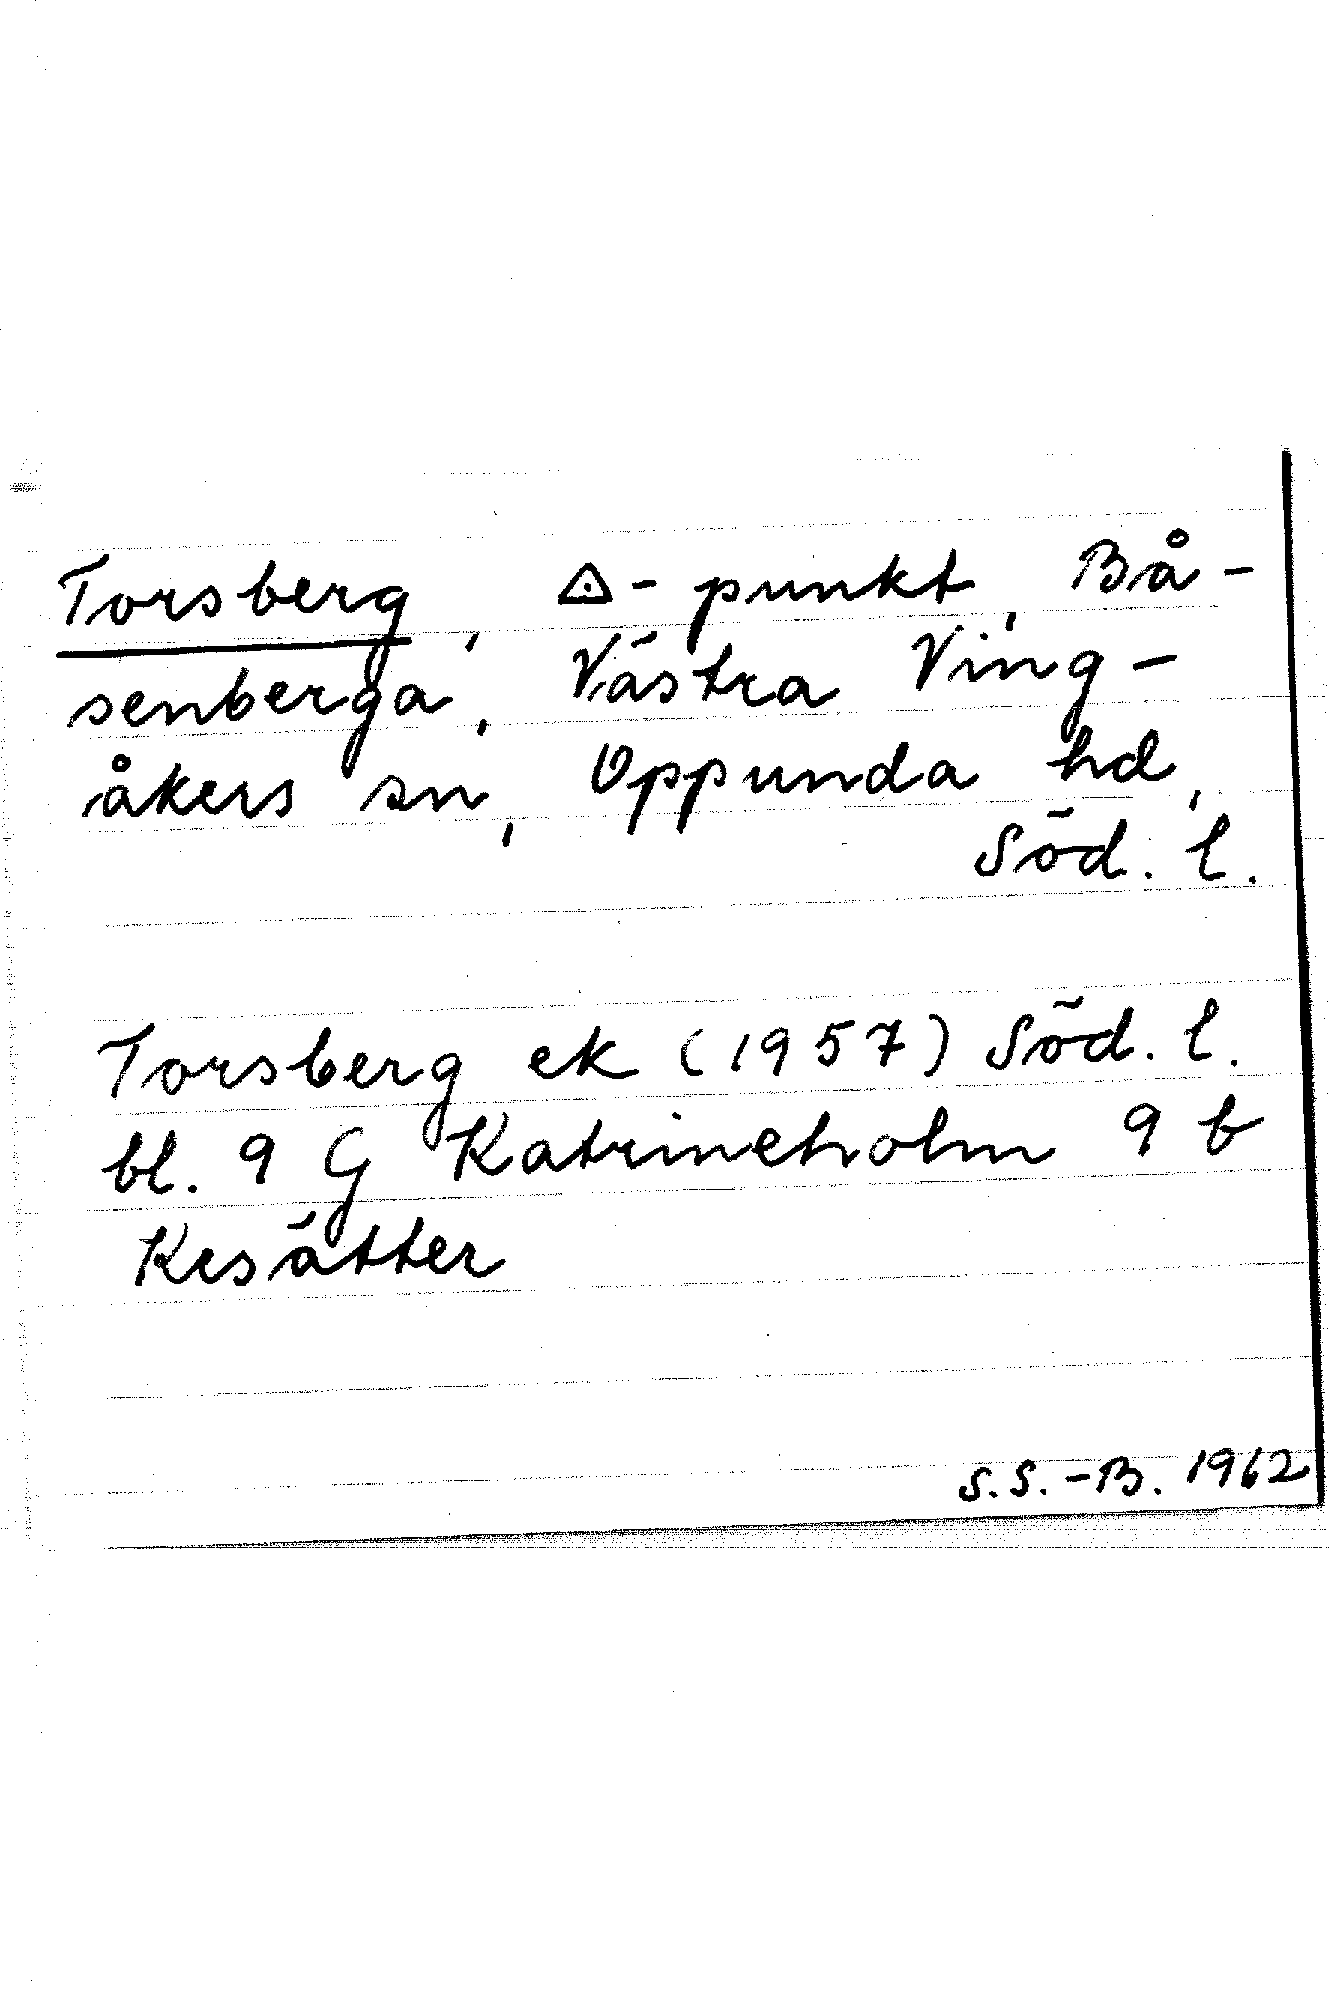 Torsberg, ⚠-punkt, Bå-
senberga, Västra Ving-
åkers sn, Oppunda hd,
Söd. l.
Torsberg ek (1957) Söd. l.
bl. 9 G Katrineholm 9 b
Kesätter
S.S.-B. 1962